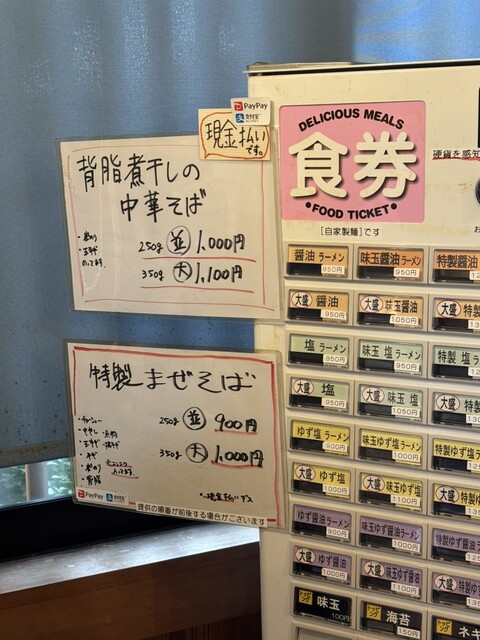 PayPay
支付宝
現金払い
です。
背脂煮干しの
中華そば
250g 並 1,000円
350g 大 1,100円
特製まぜそば
250g 並 900円
350g 大 1,000円
PayPay 支付宝
提供の順番が前後する場合がございます
DELICIOUS MEALS
食券
•FOOD TICKET•
硬貨を感知
[自家製麺]です
醤油ラーメン 850円
味玉醤油ラーメン 950円
特製醤油
大盛 醤油 950円
大盛 味玉醤油 1050円
大盛 特製
塩ラーメン 850円
味玉 塩ラーメン 950円
特製 塩
大盛 塩 950円
大盛 味玉 塩 1050円
大盛 特製
ゆず塩ラーメン 900円
味玉ゆず塩ラーメン 1000円
特製ゆず塩
大盛 ゆず塩 1000円
大盛 味玉ゆず塩 1100円
大盛 特製
ゆず醤油ラーメン 900円
味玉ゆず醤油ラーメン 1000円
特製ゆず醤油
大盛 ゆず醤油 1000円
大盛 味玉ゆず醤油 1100円
大盛 特製ゆず
トッピング 味玉 100円
トッピング 海苔 150円
トッピング ネギ